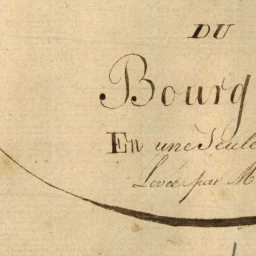 DU
Bourg
En une Seule
Levée par M